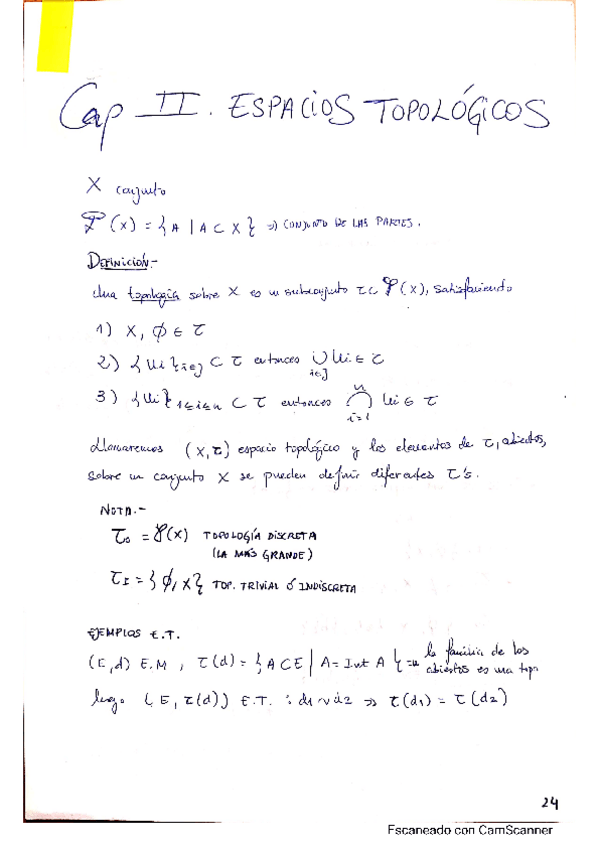 Cap II. ESPACIOS TOPOLÓGICOS
X conjunto
𝒫(X) = { A | A ⊂ X } ⇒ CONJUNTO DE LAS PARTES.
DEFINICIÓN.-
Una topología sobre X es un subconjunto τ ⊂ 𝒫(X), satisfaciendo
1) X, ∅ ∈ τ
2) {Ui}i∈J ⊂ τ entonces ∪i∈J Ui ∈ τ
3) {Ui}1≤i≤n ⊂ τ entonces ∩i=1^n Ui ∈ τ
Llamaremos (X,τ) espacio topológico y los elementos de τ, abiertos,
sobre un conjunto X se pueden definir diferentes τ's.
NOTA.-
τD = 𝒫(X) TOPOLOGÍA DISCRETA
(LA MÁS GRANDE)
τI = { ∅, X } TOP. TRIVIAL Ó INDISCRETA
EJEMPLOS E.T.
(E,d) E.M, τ(d) = { A ⊂ E | A = Int A } = la familia de los
abiertos es una top.
luego (E, τ(d)) E.T. : d1 ~ d2 ⇒ τ(d1) = τ(d2)
24
Escaneado con CamScanner